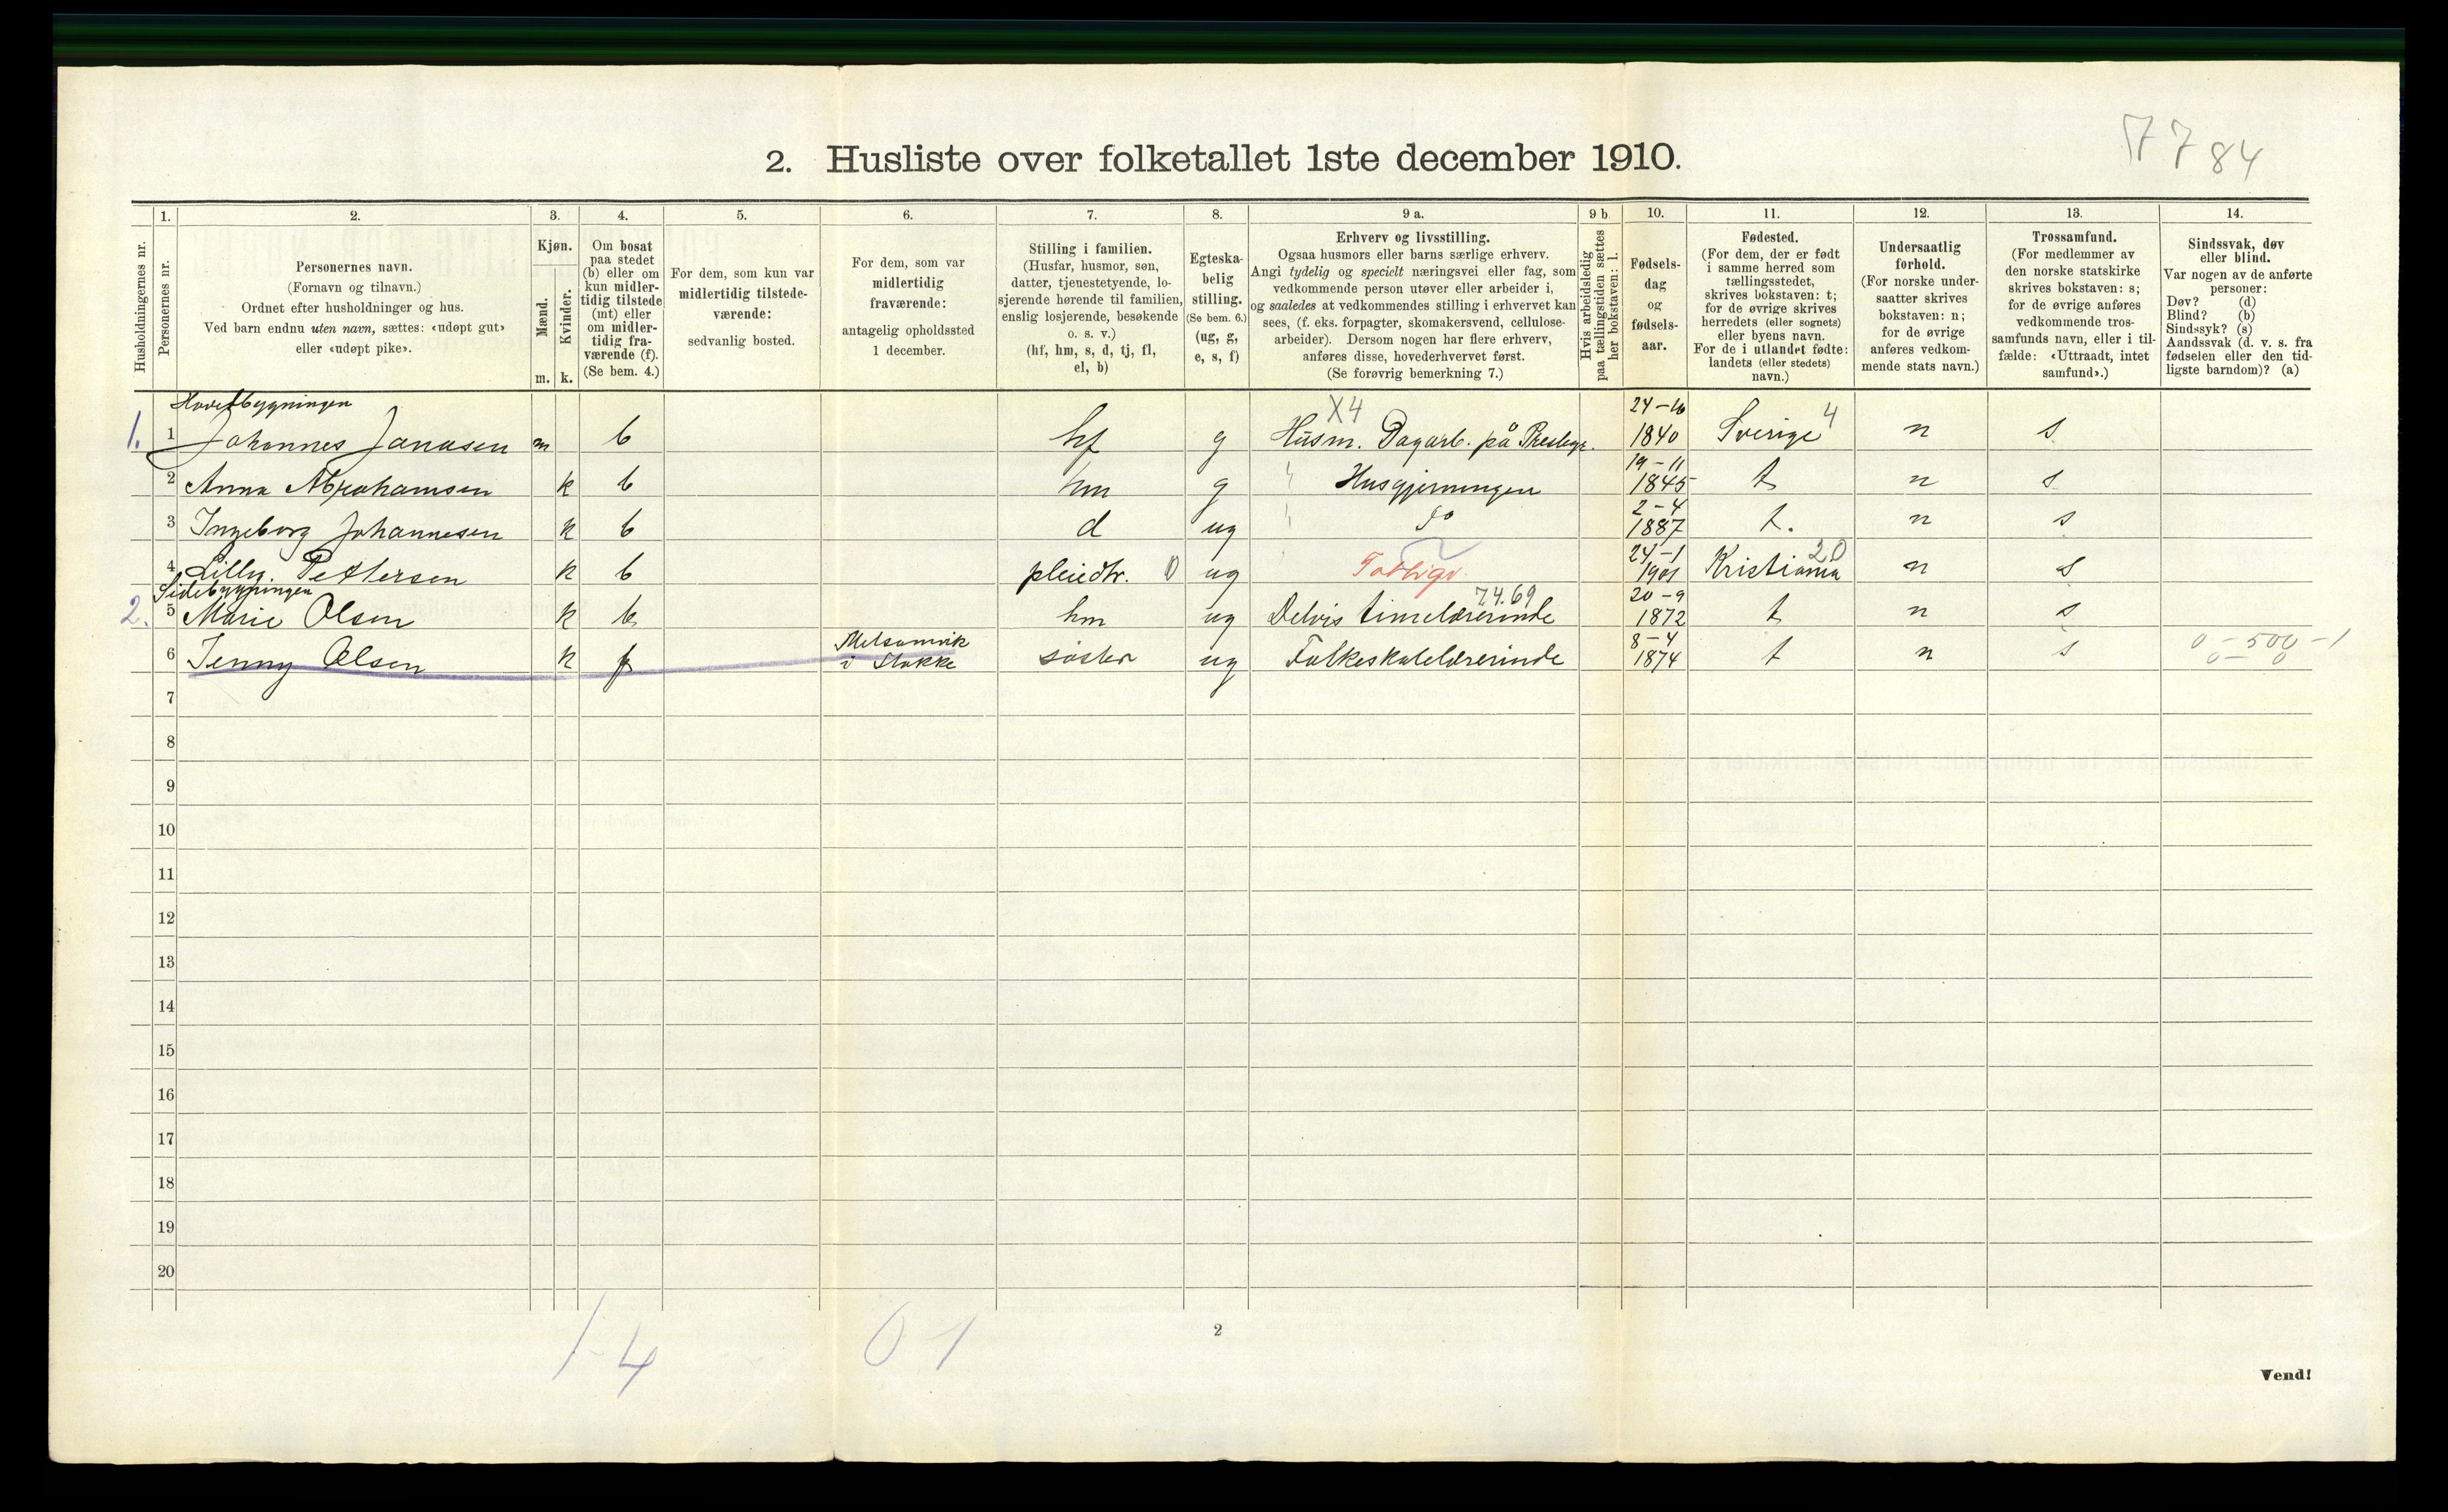 7784
2. Husliste over folketallet 1ste december 1910.
1. 2. 3. 4. 5. 6. 7. 8. 9 a. 9 b 10. 11. 12. 13. 14.
Husholdningernes nr.
Personernes nr.
Personernes navn.
(Fornavn og tilnavn.)
Ordnet efter husholdninger og hus.
Ved barn endnu uten navn, sættes: «udøpt gut»
eller «udøpt pike».
Kjøn.
Mænd.
Kvinder.
m. k.
Om bosat
paa stedet
(b) eller om
kun midler-
tidig tilstede
(mt) eller
om midler-
tidig fra-
værende (f).
(Se bem. 4.)
For dem, som kun var
midlertidig tilstede-
værende:
sedvanlig bosted.
For dem, som var
midlertidig
fraværende:
antagelig opholdssted
1 december.
Stilling i familien.
(Husfar, husmor, søn,
datter, tjenestetyende, lo-
sjerende hørende til familien,
enslig losjerende, besøkende
o. s. v.)
(hf, hm, s, d, tj, fl,
el, b)
Egteska-
belig
stilling.
(Se bem. 6.)
(ug, g,
e, s, f)
Erhverv og livsstilling.
Ogsaa husmors eller barns særlige erhverv.
Angi tydelig og specielt næringsvei eller fag, som
vedkommende person utøver eller arbeider i,
og saaledes at vedkommendes stilling i erhvervet kan
sees, (f. eks. forpagter, skomakersvend, cellulose-
arbeider). Dersom nogen har flere erhverv,
anføres disse, hovederhvervet først.
(Se forøvrig bemerkning 7.)
Hvis arbeidsledig
paa tællingstiden sættes
her bokstaven: l.
Fødsels-
dag
og
fødsels-
aar.
Fødested.
(For dem, der er født
i samme herred som
tællingsstedet,
skrives bokstaven: t;
for de øvrige skrives
herredets (eller sognets)
eller byens navn.
For de i utlandet fødte:
landets (eller stedets)
navn.)
Undersaatlig
forhold.
(For norske under-
saatter skrives
bokstaven: n;
for de øvrige
anføres vedkom-
mende stats navn.)
Trossamfund.
(For medlemmer av
den norske statskirke
skrives bokstaven: s;
for de øvrige anføres
vedkommende tros-
samfunds navn, eller i til-
fælde: «Uttraadt, intet
samfund».)
Sindssvak, døv
eller blind.
Var nogen av de anførte
personer:
Døv? (d)
Blind? (b)
Sindssyk? (s)
Aandssvak (d. v. s. fra
fødselen eller den tid-
ligste barndom)? (a)
Hovedbygningen X4 24-10 4
1. 1 Johannes Janusen m b hf g Husm. Dagarb. på Prestegr. 1840 Sverige n s
19-11
2 Anna Abrahamsen k b hm g Husgjerningen 1845 t n s
2-4
3 Ingeborg Johannesen k b d ug do 1887 t. n s
24-1 20
4 Lilly Pettersen k b pleiedtr. 0 ug Fattigu. 1901 Kristiania n s
Sidebygningen 7.4.69 20-9
2. 5 Marie Olsen k b hm ug Delvis timelærerinde 1872 t n s
Melsomvik 8-4 0-500-1
6 Jenny Olsen k f i Stokke søster ug Folkeskolelærerinde 1874 t n s 0-0
7
8
9
10
11
12
13
14
15
16
17
18
19
20
1-4 01
2
Vend!